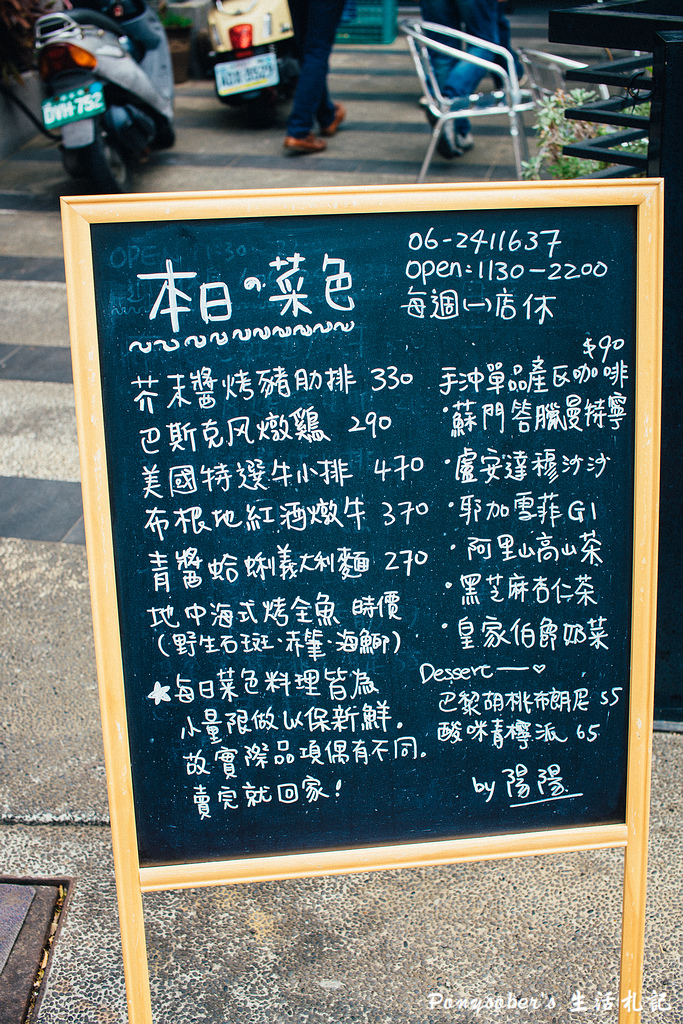 DVH-752
本日の菜色
06-2411637
open:1130-2200
每週(一)店休
芥末醬烤豬肋排 330
巴斯克风燉鷄 290
美國特選牛小排 470
布根地紅酒燉牛 370
青醬蛤蜊義大利麵 270
地中海式烤全魚 時價
(野生石斑·赤筆·海鯽)
☆每日菜色料理皆為
小量限做以保新鮮.
故實際品項偶有不同.
賣完就回家!
$90
手沖單品產區咖啡
·蘇門答臘曼特寧
·盧安達穆沙沙
·耶加雪菲G1
·阿里山高山茶
·黑芝麻杏仁茶
·皇家伯爵奶菜
Dessert—♡
巴黎胡桃布朗尼 55
酸咪青檸派 65
by 陽陽
Ponysaber's 生活札記